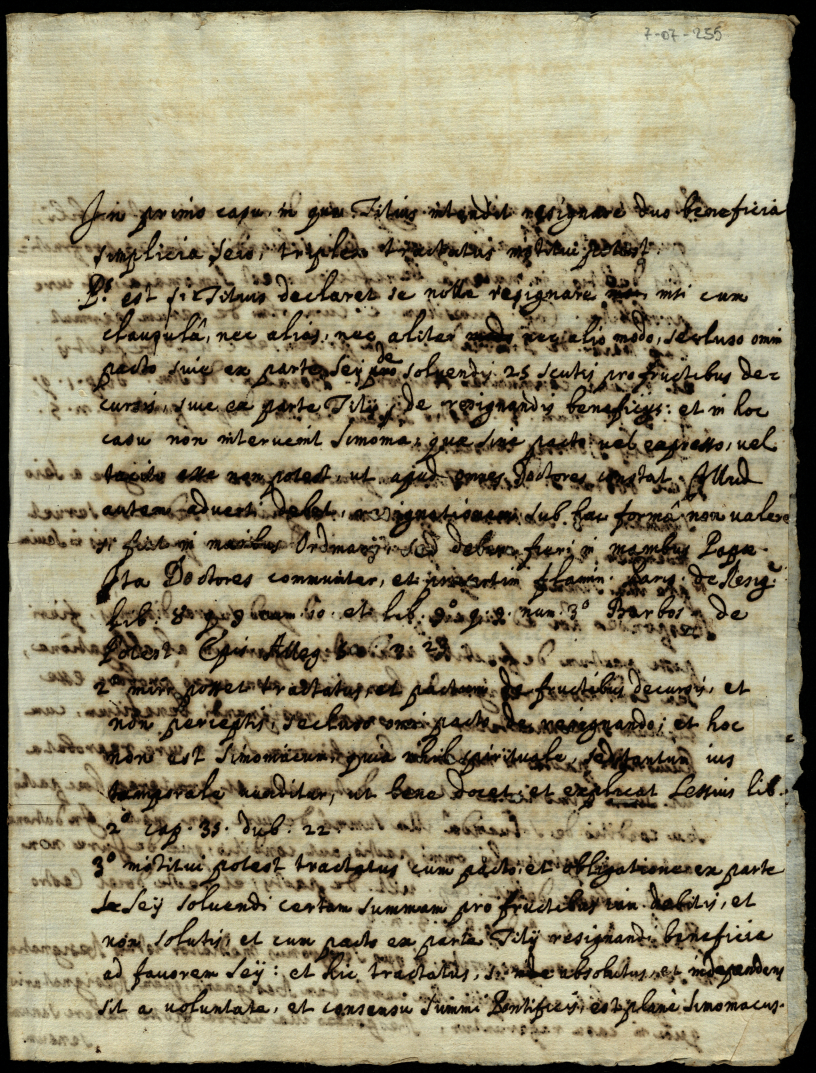 7-07-255
In primo casu, in quo Titius intendit resignare duo beneficia
simplicia Seio, triplex tractatus institui potest.
P.s est si Titius declaret se nolle resignare nisi cum
clausulâ, nec alias, nec aliter nec alio modo, secluso omni
pacto sive ex parte Seij de solvendi 25 scutis pro fructibus de-
cursis, sive ex parte Titij, de resignandis beneficijs: et in hoc
casu non intervenit simonia, quae sine pacto vel expresso, vel
tacito esse non potest, ut apud omnes Doctores constat. Illud
autem adverti debet, resignationem sub hac formâ non valere
si fiat in manibus Ordinarij, sed debere fieri in manibus Papae
Ita Doctores communiter, et Flamin. Paris. de Resig.e
lib. 8 q. 9 num. 60. et lib. 9.º q. 2. num. 3.º Barbos. de
Potest. Epis. Alleg.
2.º iniri posset tractatus, et pactum de fructibus decursis, et
non perceptis, secluso omni pacto de resignando; et hoc
non est simoniacum, quia nihil spirituale, sed tantum ius
temporale venditur, ut bene docet, et explicat Lessius lib.
2.º cap. 35. dub. 22.
3.º institui potest tractatus cum pacto, et obligatione ex parte
Seij solvendi certam summam pro fructibus iam debitis, et
non solutis, et cum pacto ex parte Titij resignandi beneficia
ad favorem Seij: et hic tractatus, si absolutus, et independens
sit a voluntate, et consensu Summi Pontificis, est plane simoniacus.